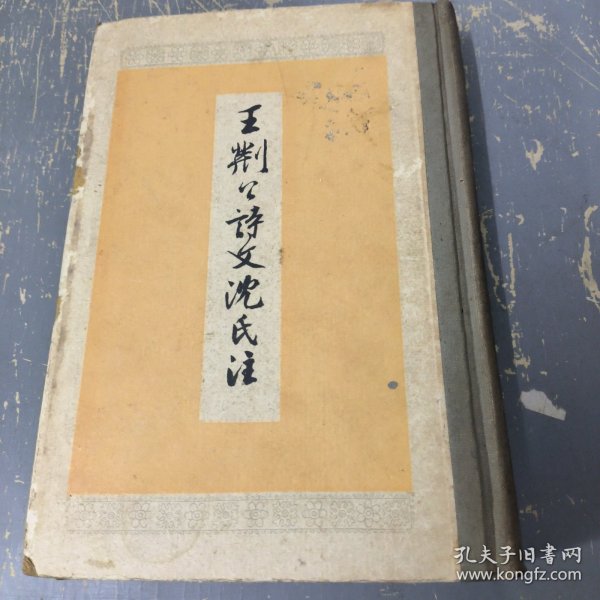 王荆公詩文沈氏注
孔夫子旧書网
www.kongfz.com